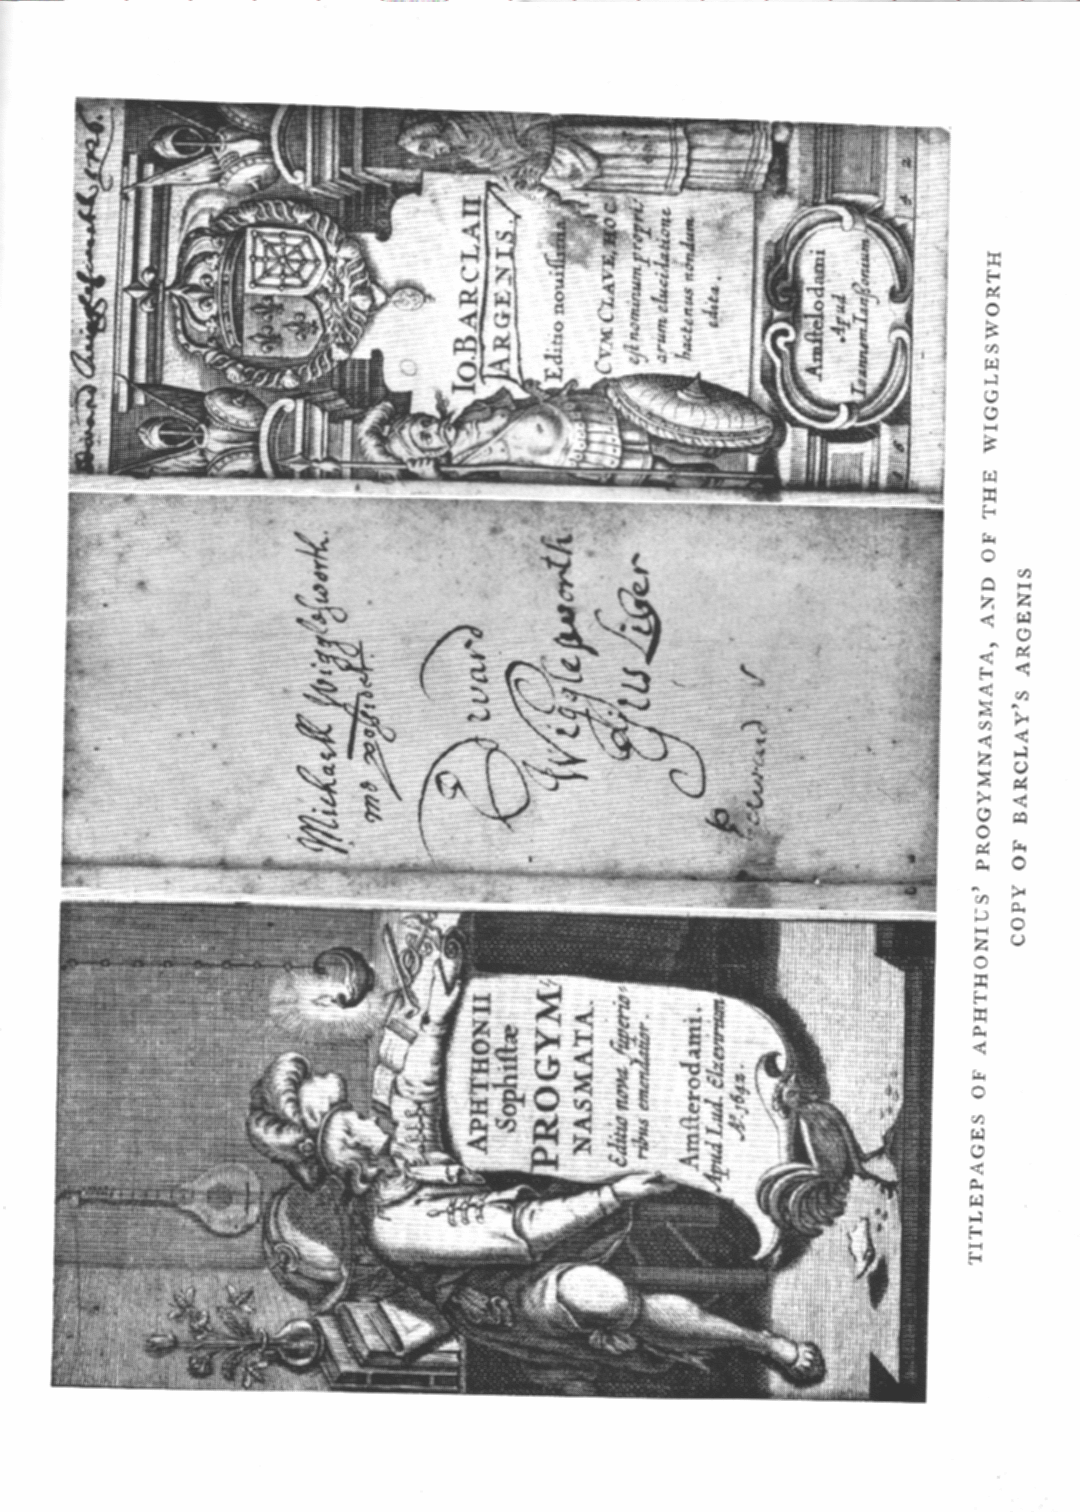 APHTHONII
Sophistæ
PROGYM-
NASMATA.
Editio nova superio-
ribus emendatior.
Amsterodami.
Apud Lud. Elzevirium
Aº. 1642.
Michaell Wigglesworth.
me possidet
Edward
Wigglesworth
Ejus Liber
Edward Wigglesworth
IO. BARCLAII
ARGENIS.
Editio nouissima
CVM CLAVE, HOC
est nominum propri-
arum elucidatione
hactenus nondum
edita.
Amstelodami
Apud
Ioannem Ianssonium
1642
TITLEPAGES OF APHTHONIUS' PROGYMNASMATA, AND OF THE WIGGLESWORTH
COPY OF BARCLAY'S ARGENIS